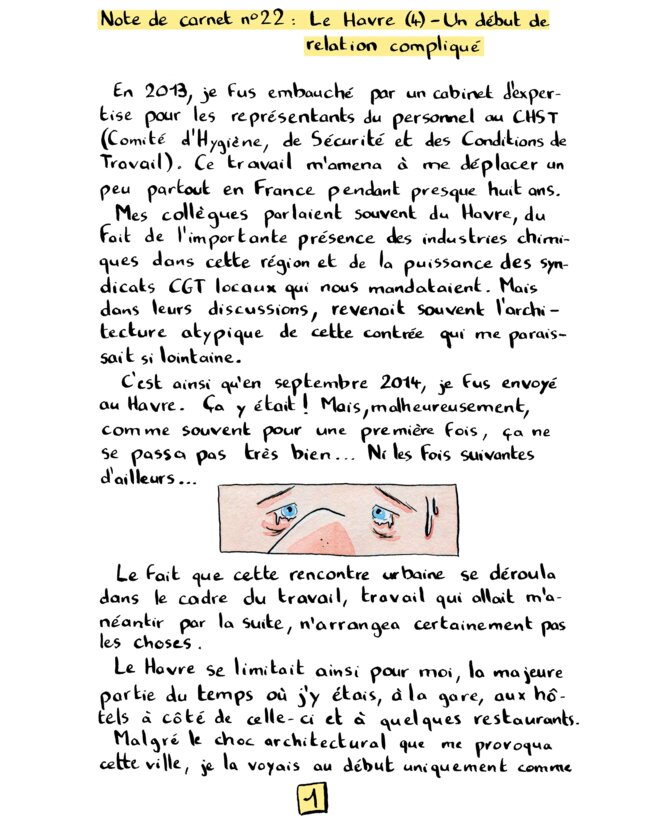 Note de carnet n°22 : Le Havre (4) - Un début de
relation compliqué
En 2013, je fus embauché par un cabinet d'exper-
tise pour les représentants du personnel au CHST
(Comité d'Hygiène, de Sécurité et des Conditions de
Travail). Ce travail m'amena à me déplacer un
peu partout en France pendant presque huit ans.
Mes collègues parlaient souvent du Havre, du
fait de l'importante présence des industries chimi-
ques dans cette région et de la puissance des syn-
dicats CGT locaux qui nous mandataient. Mais
dans leurs discussions, revenait souvent l'archi-
tecture atypique de cette contrée qui me parais-
sait si lointaine.
C'est ainsi qu'en septembre 2014, je fus envoyé
au Havre. Ça y était ! Mais, malheureusement,
comme souvent pour une première fois, ça ne
se passa pas très bien... Ni les fois suivantes
d'ailleurs...
Le fait que cette rencontre urbaine se déroula
dans le cadre du travail, travail qui allait m'a-
néantir par la suite, n'arrangea certainement pas
les choses.
Le Havre se limitait ainsi pour moi, la majeure
partie du temps où j'y étais, à la gare, aux hô-
tels à côté de celle-ci et à quelques restaurants.
Malgré le choc architectural que me provoqua
cette ville, je la voyais au début uniquement comme
1